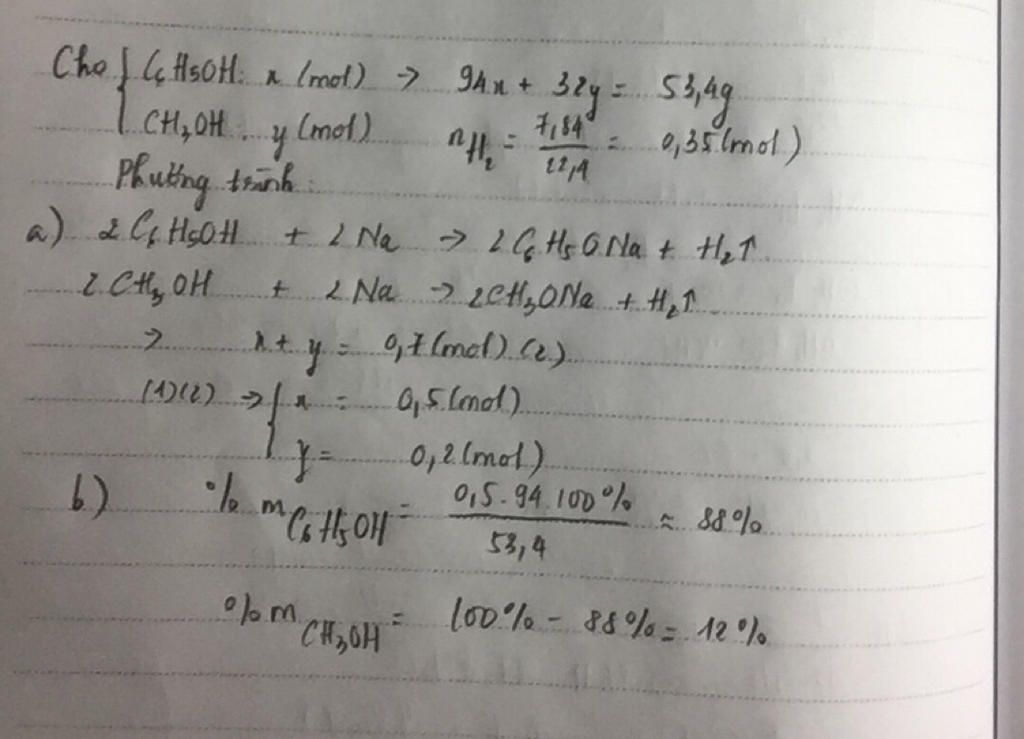 Cho { C₆H₅OH: x (mol) → 94x + 32y = 53,4g
CH₃OH: y (mol) nH₂ = 7,84/22,4 = 0,35 (mol)
Phương trình:
a) 2C₆H₅OH + 2Na → 2C₆H₅ONa + H₂↑
2CH₃OH + 2Na → 2CH₃ONa + H₂↑
→ x + y = 0,7 (mol) (2)
(1)(2) → { x = 0,5 (mol)
y = 0,2 (mol)
b) % m C₆H₅OH = 0,5.94.100%/53,4 ≈ 88%
% m CH₃OH = 100% - 88% = 12%